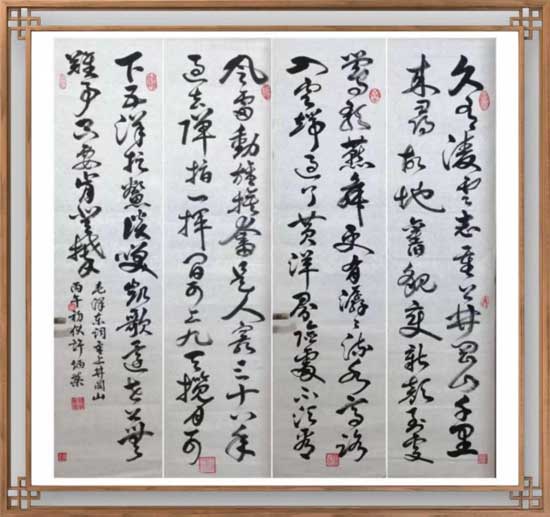 久有凌云志重上井冈山千里
来尋故地舊貌变新颜到处
鶯歌燕舞更有潺潺流水高路
入雲端过了黄洋界险處不须看
風雷動旌旗奮是人寰三十八年
过去弹指一挥间可上九天揽月可
下五洋捉鳖谈笑凯歌还世上無
難事只要肯登攀
毛泽东词重上井岡山
丙午初伏許炳